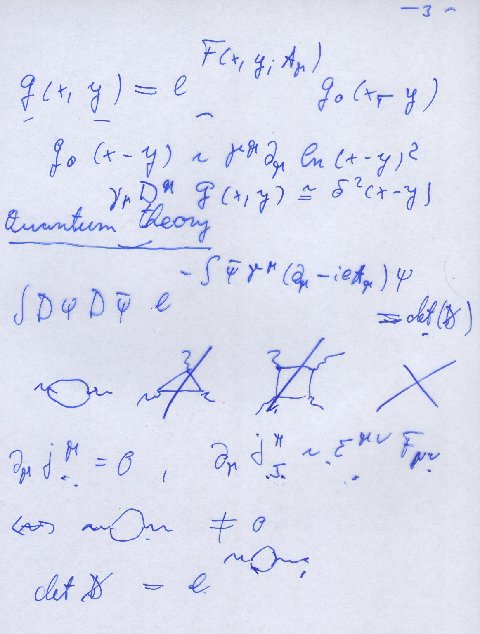 — 3 —
G(x, y) = e^{F(x, y; A_μ)} g_0(x - y)
g_0(x-y) ~ γ^μ ∂_μ ln(x-y)^2
γ_μ D^μ G(x, y) ≃ δ^2(x-y)
Quantum theory
∫ Dψ Dψ̄ e^{-∫ ψ̄ γ^μ (∂_μ - ieA_μ) ψ}
= det(D̸)
∂_μ j^μ = 0 , ∂_μ j_5^μ ~ ε^{μν} F_{μν}
⇔ ≠ 0
det D̸ = e